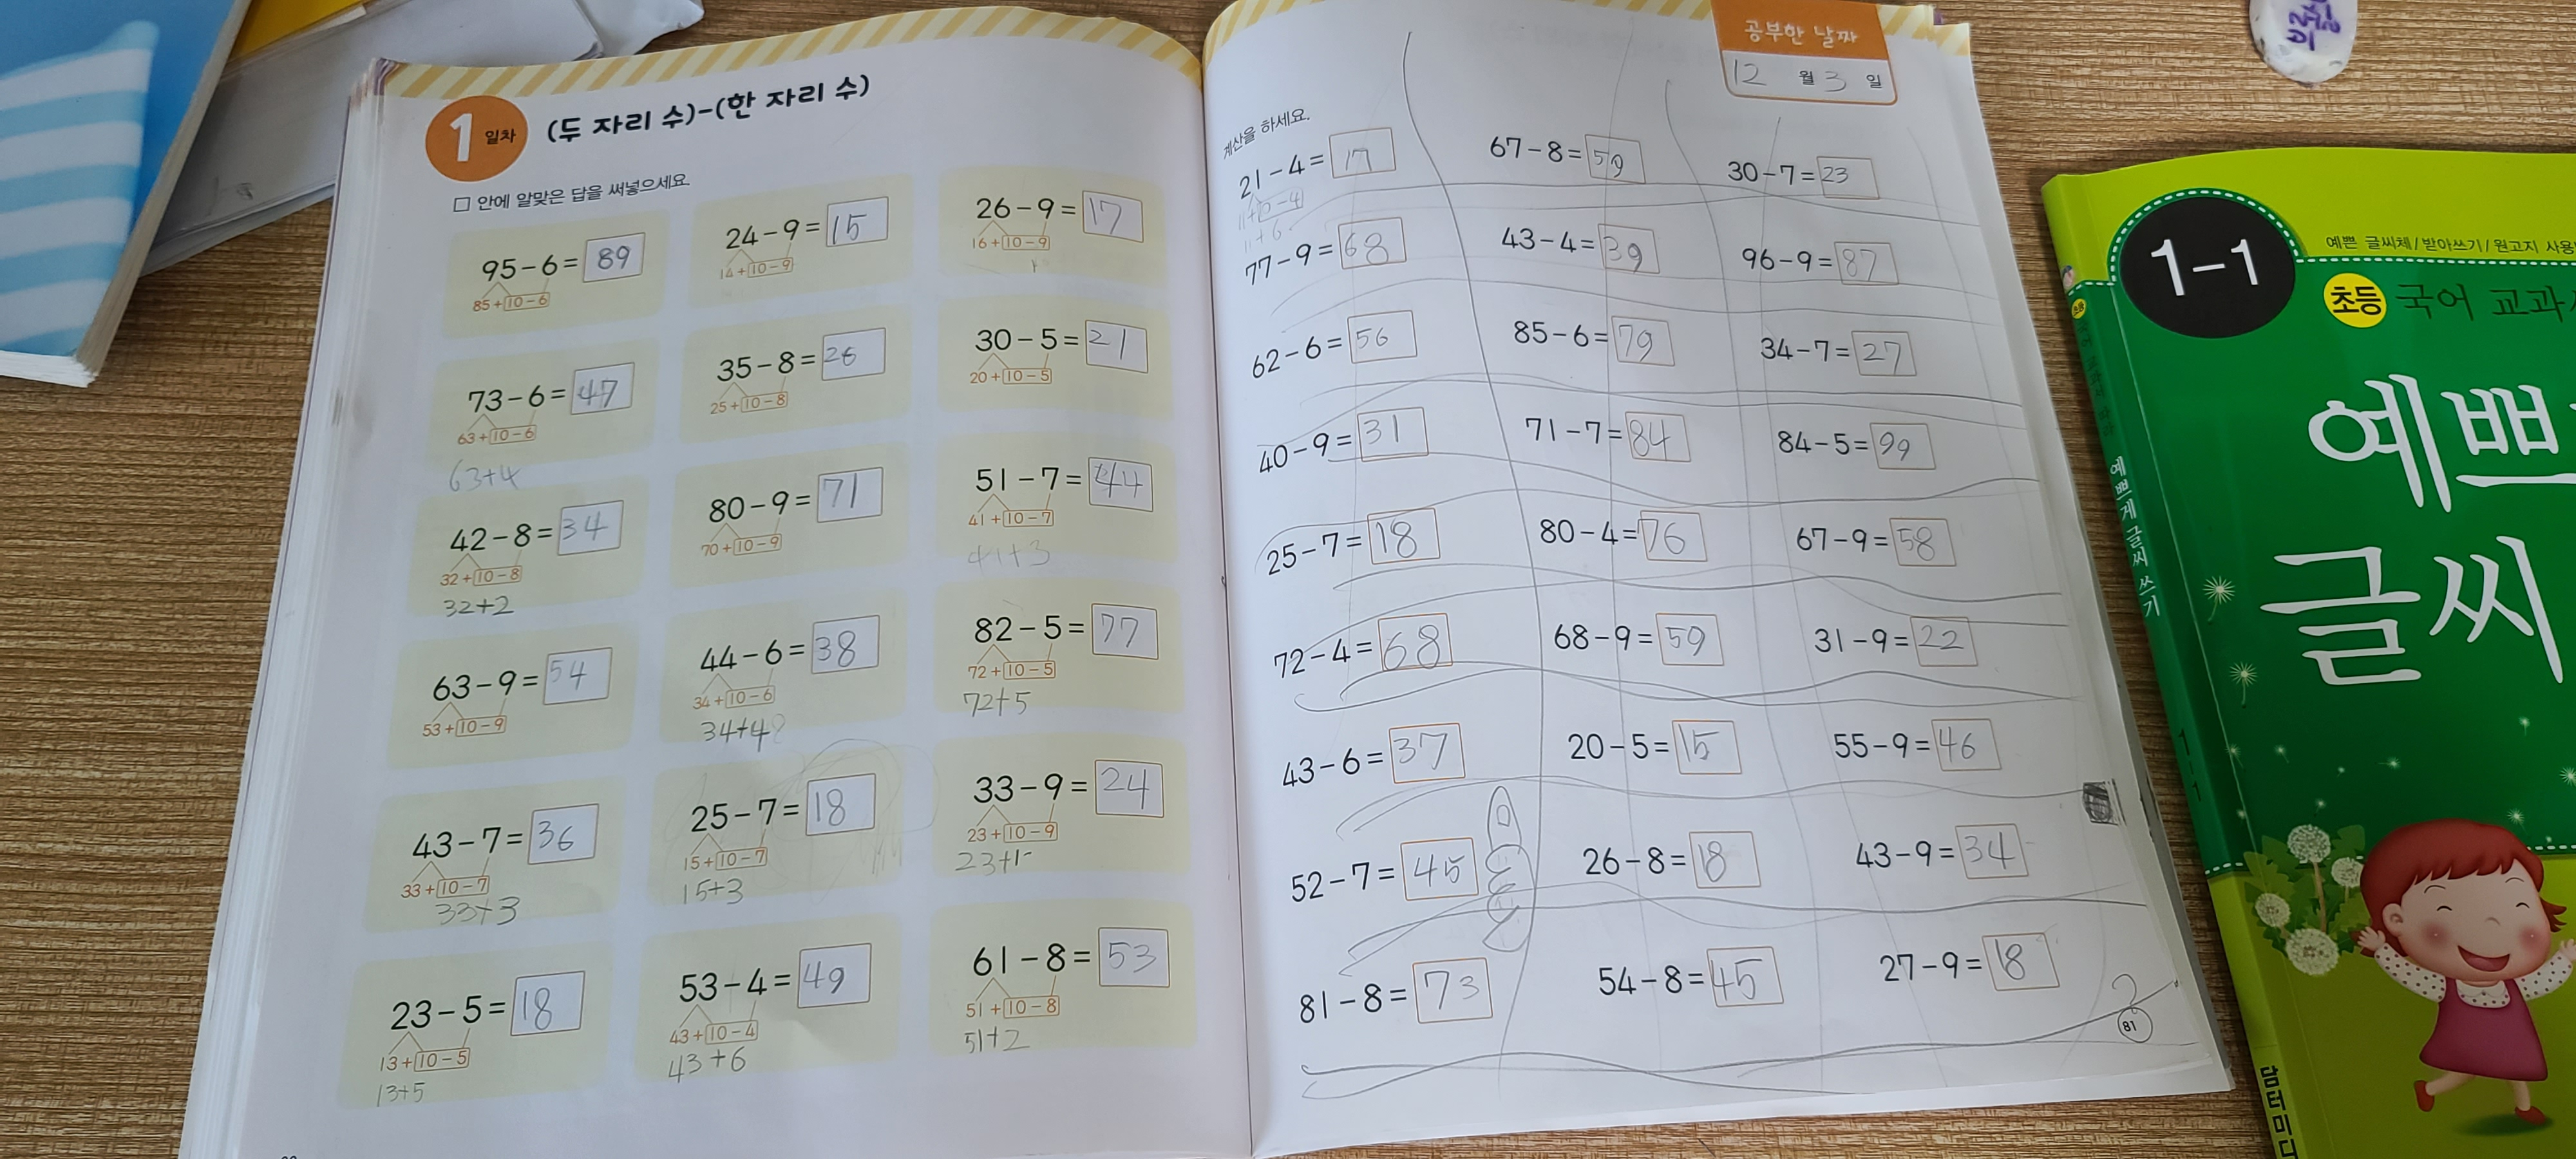 1 일차 (두 자리 수)-(한 자리 수)
□ 안에 알맞은 답을 써넣으세요.
95-6=89
85+10-6
24-9=15
14+10-9
26-9=17
16+10-9
73-6=47
63+10-6
63+4
35-8=26
25+10-8
30-5=21
20+10-5
42-8=34
32+10-8
32+2
80-9=71
70+10-9
51-7=44
41+10-7
41+3
63-9=54
53+10-9
44-6=38
34+10-6
34+4
82-5=77
72+10-5
72+5
43-7=36
33+10-7
33+3
25-7=18
15+10-7
15+3
33-9=24
23+10-9
23+1
23-5=18
13+10-5
13+5
53-4=49
43+10-4
43+6
61-8=53
51+10-8
51+2
공부한 날짜
12 월 3 일
계산을 하세요.
21-4=17
11+10-4
11+6
67-8=59
30-7=23
77-9=68
43-4=39
96-9=87
62-6=56
85-6=79
34-7=27
40-9=31
71-7=84
84-5=99
25-7=18
80-4=76
67-9=58
72-4=68
68-9=59
31-9=22
43-6=37
20-5=15
55-9=46
52-7=45
26-8=18
43-9=34
81-8=73
54-8=45
27-9=18
81
1-1
예쁜 글씨체/받아쓰기/원고지 사용
초등 국어 교과
예쁘
글씨
예쁘게 글씨 쓰기
1-1
담터미디